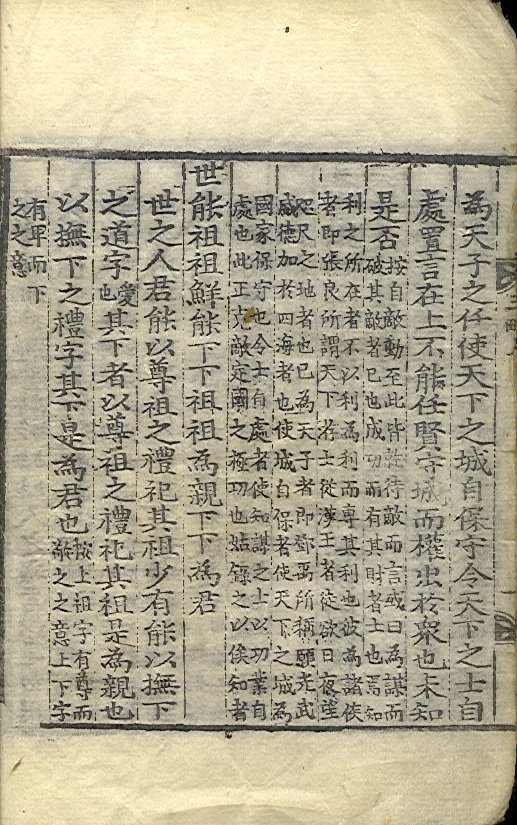 為天子之任使天下之城自保守令天下之士自
處置言在上不能任賢守城而權出於衆也未知
是否
按自敵動至此皆㫖待敵而言或曰為謀而
破其敵者已也成功而有其財者士也焉知
利之所在者不以利為利而專其利也彼為諸侯
者即張良所謂天下㳺士從漢王者徒欲日夜望
咫尺之地者也已為天子者即鄧禹所稱願光武
威德加於四海者也使城自保者使天下之城為
國家保守也令士自處者使知謀之士以功業自
處也此正克敵定國之極功也姑錄之以俟知者
世能祖祖鮮能下下祖祖為親下下為君
世之人君能以尊祖之禮祀其祖少有能以撫下
之道字
愛
也
其下者以尊祖之禮祀其祖是為親也
以撫下之禮字其下是為君也
按上祖字有尊而
敬之之意上下字
有卑而下
之之意